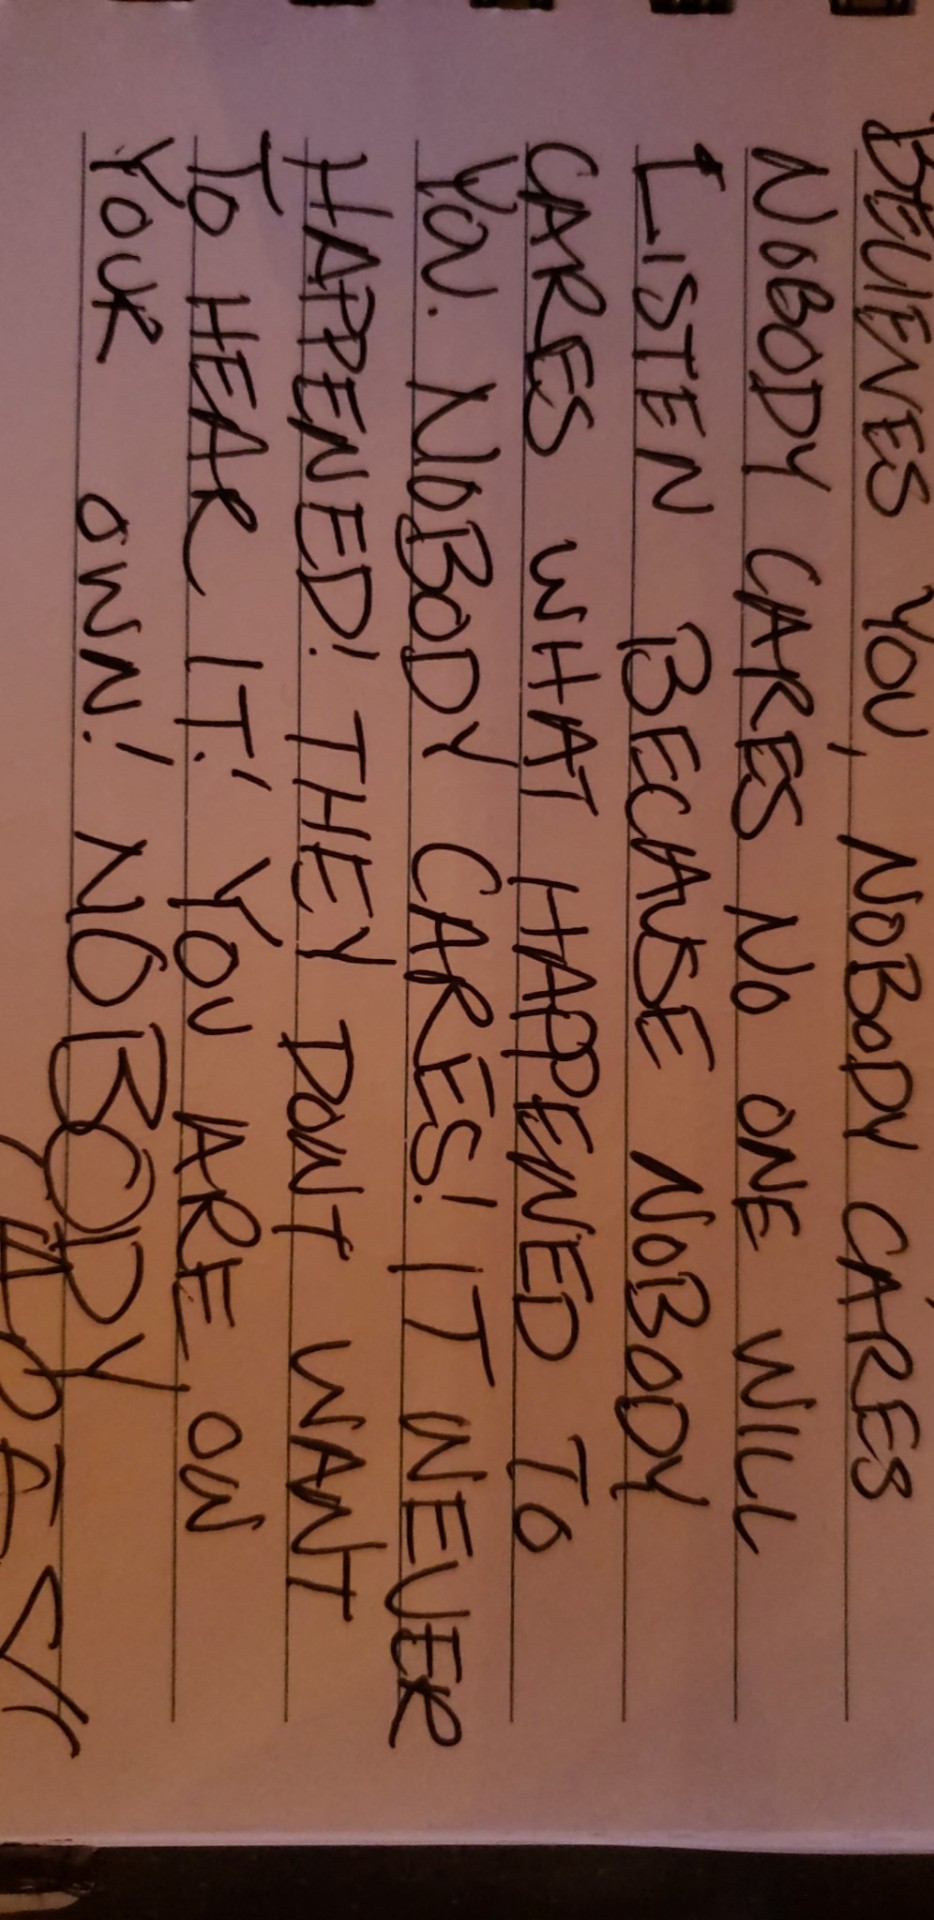 BELIEVES YOU, NOBODY CARES
NOBODY CARES NO ONE WILL
LISTEN BECAUSE NOBODY
CARES WHAT HAPPENED TO
YOU. NOBODY CARES! IT NEVER
HAPPENED! THEY DONT WANT
TO HEAR IT! YOU ARE ON
YOUR OWN! NOBODY
CARES!